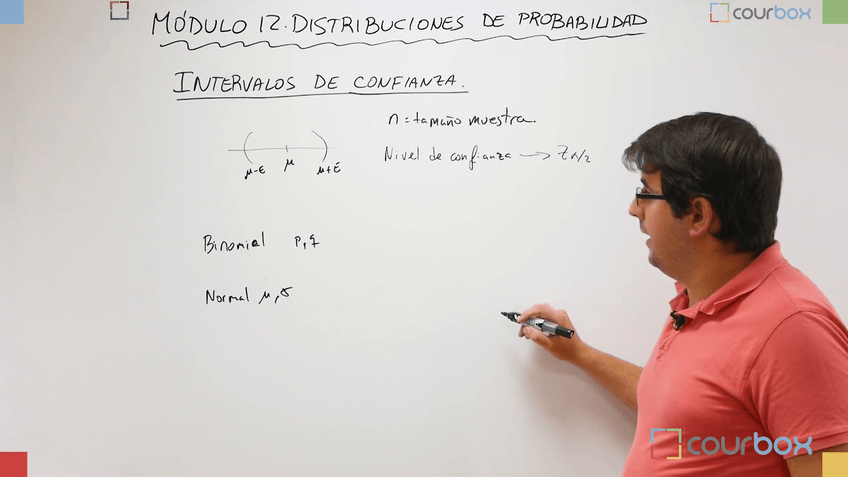 courbox
MÓDULO 12. DISTRIBUCIONES DE PROBABILIDAD
INTERVALOS DE CONFIANZA.
n = tamaño muestra.
Nivel de confianza → Z α/2
μ-E μ μ+E
Binomial p, q
Normal μ, σ
courbox